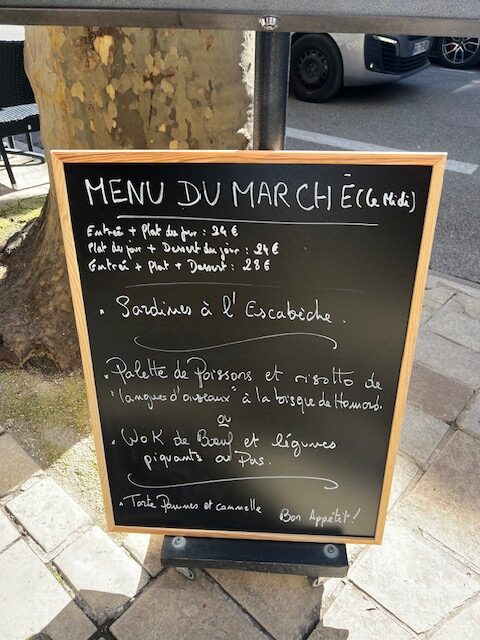 MENU DU MARCHÉ (Le Midi)
Entrée + Plat du jour : 24 €
Plat du jour + Dessert du jour : 24 €
Entrée + Plat + Dessert : 28 €
. Sardines à l'Escabèche.
. Palette de Poissons et risotto de
"langues d'oiseaux" à la bisque de Homard.
ou
. Wok de Bœuf et légumes
piquants ou Pas.
. Tarte Pommes et cannelle
Bon Appétit !